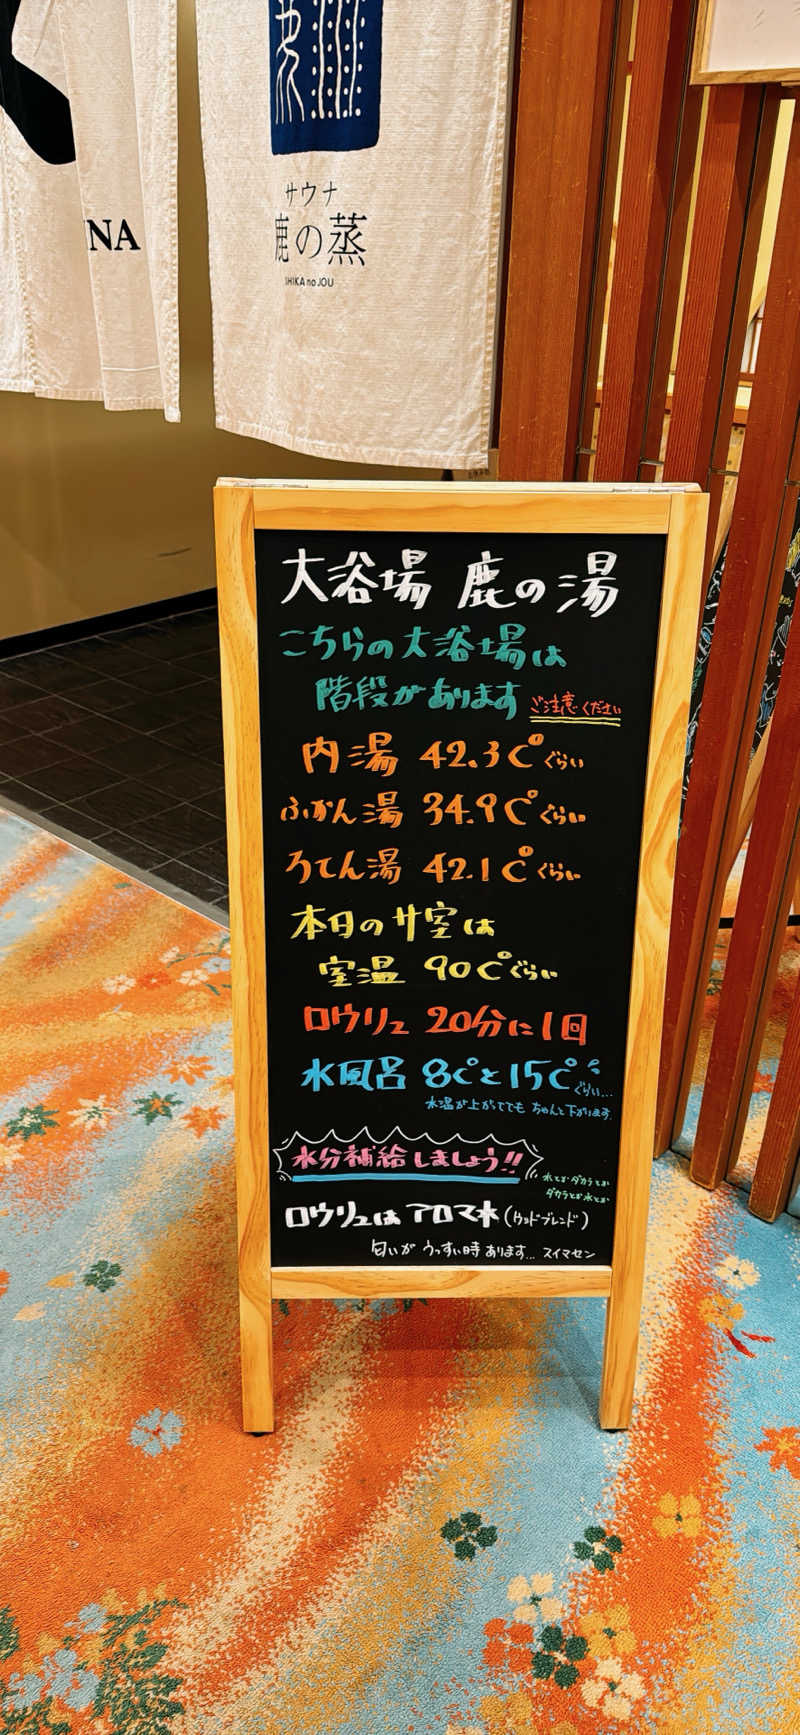 NA
サウナ
鹿の蒸
SHIKA no JOU
大浴場 鹿の湯
こちらの大浴場は
階段があります ご注意ください
内湯 42.3C°ぐらい
ふかん湯 34.9C°ぐらい
ろてん湯 42.1C°ぐらい
本日のサ室は
室温 90C°ぐらい
ロウリュ 20分に1回
水風呂 8C°と15C°ぐらい...
水温が上がてても ちゃんと下がります.
水分補給しましょう!!
水とか ダカラとか
ダカラとか 水とか
ロウリュはアロマ水(ウッドブレンド)
匂いが うっすい時 あります... スイマセン